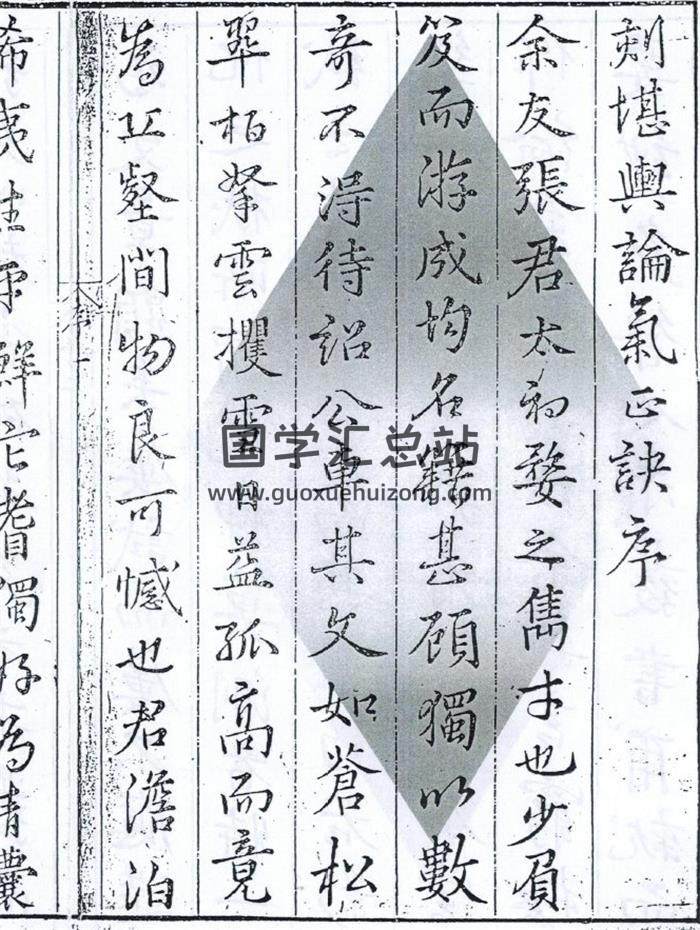 刻堪輿論氣正訣序
余友張君太初婺之雋才也少負
笈而游成均名籍甚顧獨以數
奇不得待詔公車其文如蒼松
翠柏拏雲攫霧日益孤高而竟
為丘壑間物良可憾也君澹泊
希夷生平鮮它嗜獨好為青囊
序一
国学汇总站
www.guoxuehuizong.com